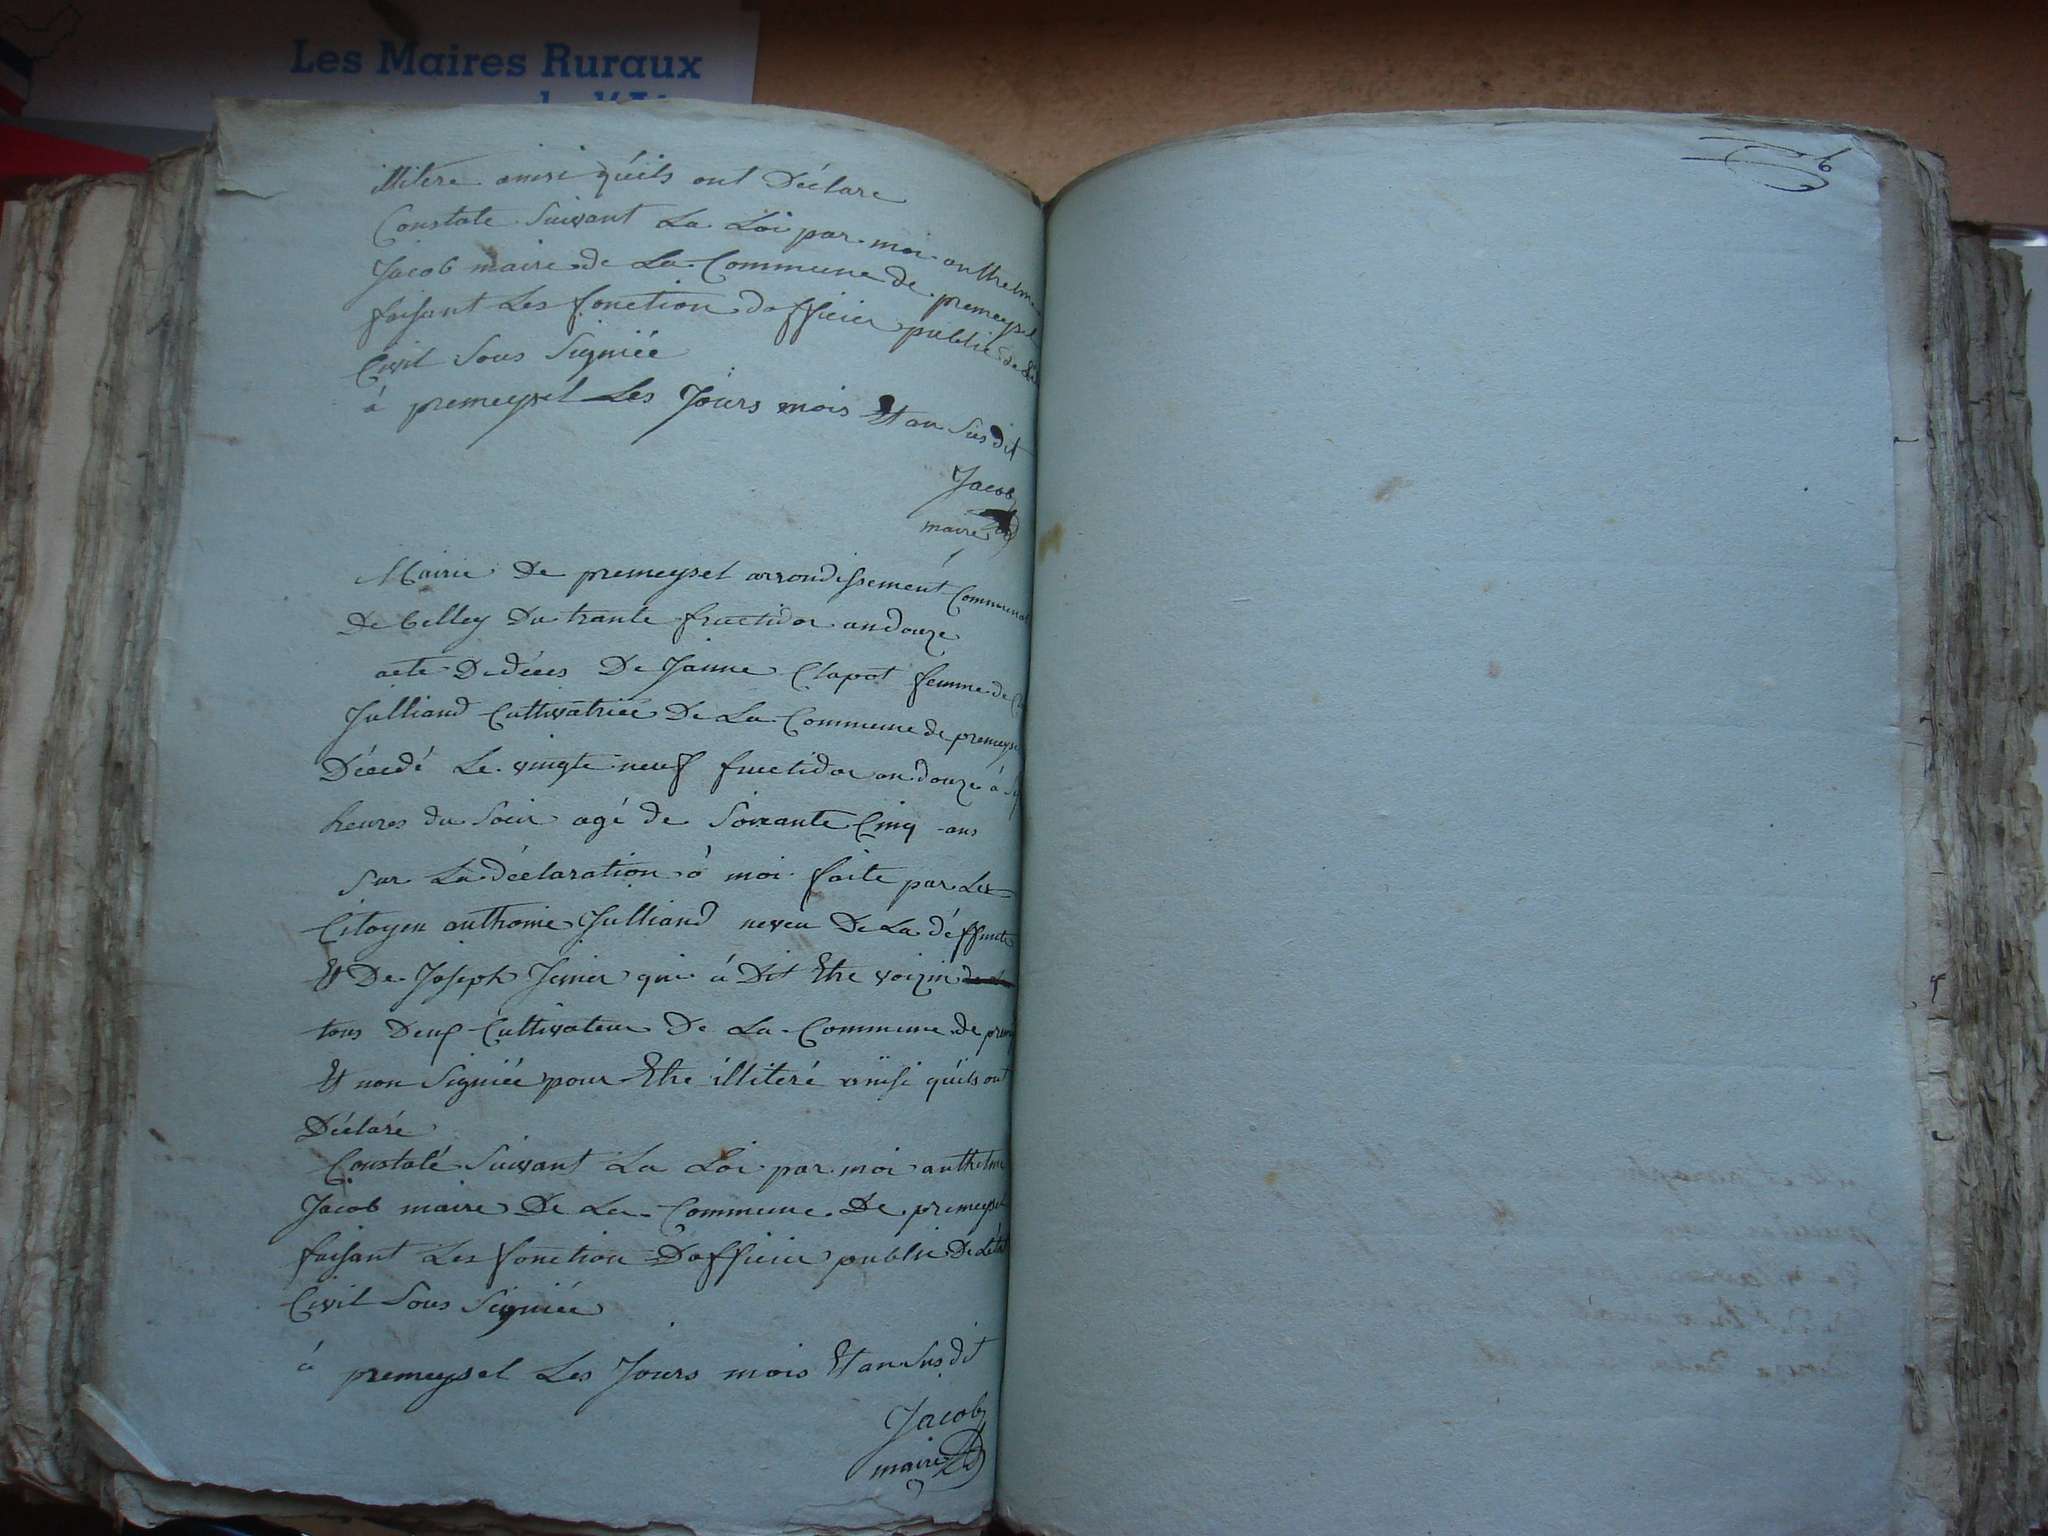 Les Maires Ruraux
illitere ainsi quéils ont Déclare
Constate Suivant La Loi par moi anthelme
Jacob maire de La Commune de premeysel
faisant Les fonction dofficier public de
Civil Sous Signiée
á premeysel Les Jours mois Et an Susdit
Jacob
maire
Mairie De premeysel arrondissement Communal
De belley Du trante fructidor an douze
acte De déces De Janne Clapot femme de
Julliand Cultivatrice De La Commune de premeysel
Décedé Le vingte neuf fructidor an douze á
heures du Soir agé de Soixante Cinq ans
Sur La déclaration á moi faite par Les
Citoyen anthoine Julliand neveu De La déffuncte
Et De Joseph Jenier qui á Dit Etre voizin
tous Deux Cultivateur De La Commune de
Et non Signiée pour Etre illiteré ainsi quéils ont
Déclaré
Constaté Suivant La Loi par moi anthelme
Jacob maire De La Commune De premeysel
faisant Les fonction Dofficier public De Létat
Civil Sous Signiée
á premeysel Les Jours mois Et an Susdit
Jacob
maire